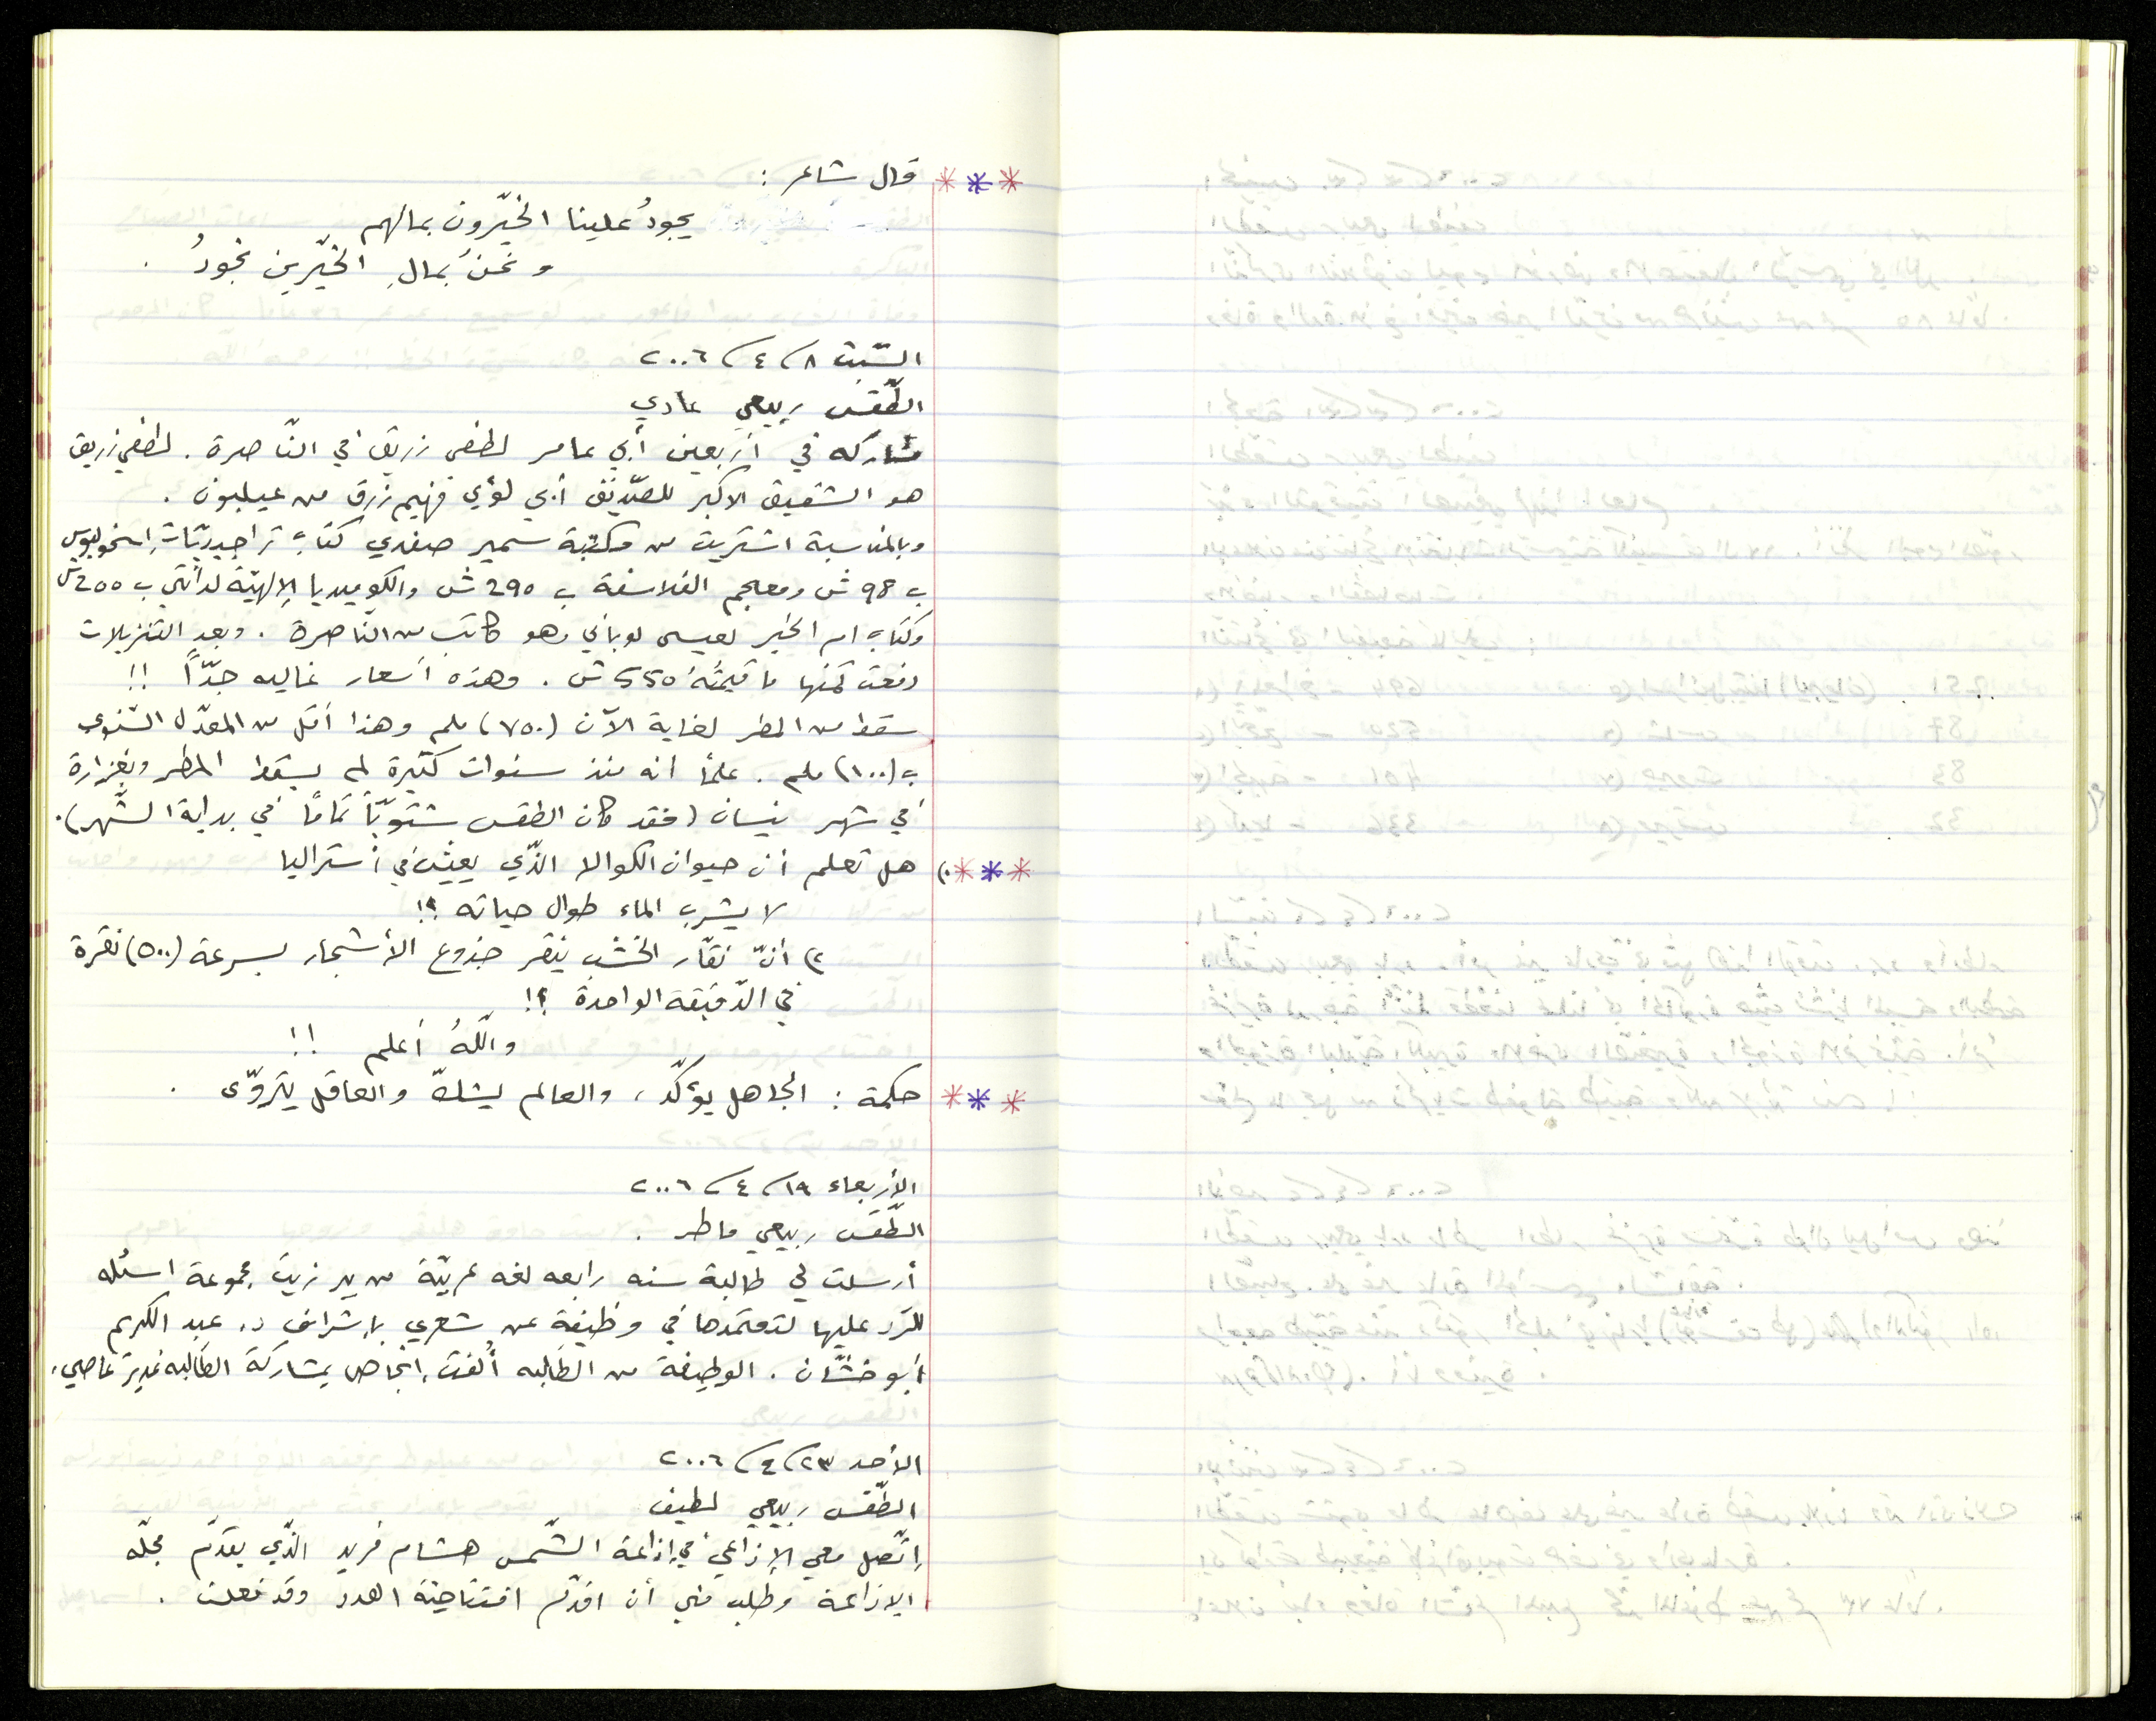 *** قال شاعر :
يجودُ علينا الخيّرون بمالهم
ونحنُ بمالِ الخيّرين نجودُ .
السّبت ٨/ ٤/ ٢٠٠٦
الطّقس ربيعي عادي
مشاركه في أربعين أبي عامر لطفي زريق في النّاصرة . لطفي زريق
هو الشقيق الاكبر للصّديق أبي لؤي فهيم زرق من عيلبون .
وبالمناسبة اشتريت من مكتبة سمير صفدي كتاب تراجيديّات اسخوليوس
ب 98 ش ومعجم الفلاسفة ب 290 ش والكوميديا الإلهيّة لدانتي ب 200 ش
وكتاب ام الخير لعيسى لوباني وهو كاتب من الناصرة . وبعد التنزيلات
دفعت ثمنها ما قيمتُهُ 550 ش . وهذه أسعار غاليه جدّاً !!
سقط من المطر لغاية الآن (٧٥٠) ملم وهذا أقل من المعدّل السّنوي
ب (١٠٠) ملم . علماً انه منذ سنوات كثيرة لم يسقط المطر وبغزارة
في شهر نيسان (فقد كان الطقس شتويّاً تماماً في بداية الشّهر).
*** ١) هل تعلم أن حيوان الكوالا الذّي يعيش في أستراليا
لا يشرب الماء طوال حياته ؟!
٢) أنّ نقّار الخشب ينقر جذوع الأشجار بسرعة (٥٠٠) نقرة
في الدّقيقة الواحدة ؟!
واللّهُ أعلم !!
*** حكمة : الجاهل يؤكّد ، والعالم يشكّ والعاقل يتروّى .
الأربعاء ١٩/ ٤/ ٢٠٠٦
الطّقس ربيعي ماطر .
أرسلت لي طالبة سنه رابعه لغه عربيّة من بير زيت مجموعة اسئله
للرّد عليها لتدعمها في وظيفة عن شعري بإشراف د. عبد الكريم
أبو خشّان . الوظيفة من الطّالبه أُلفت انجاص بمشاركة الطّالبه غدير عاصي.
الأحد ٢٣/ ٤/ ٢٠٠٦
الطّقس ربيعي لطيف
إتّصل معي الإذاعي في إذاعة الشّمس هشام فريد الذّي يقدّم مجلّه
الإذاعة وطلب مني أن اقدّم افتتاحيّة العدد وقد فعلت .